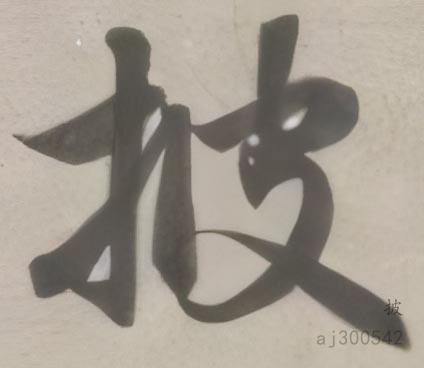 披
披
aj300542